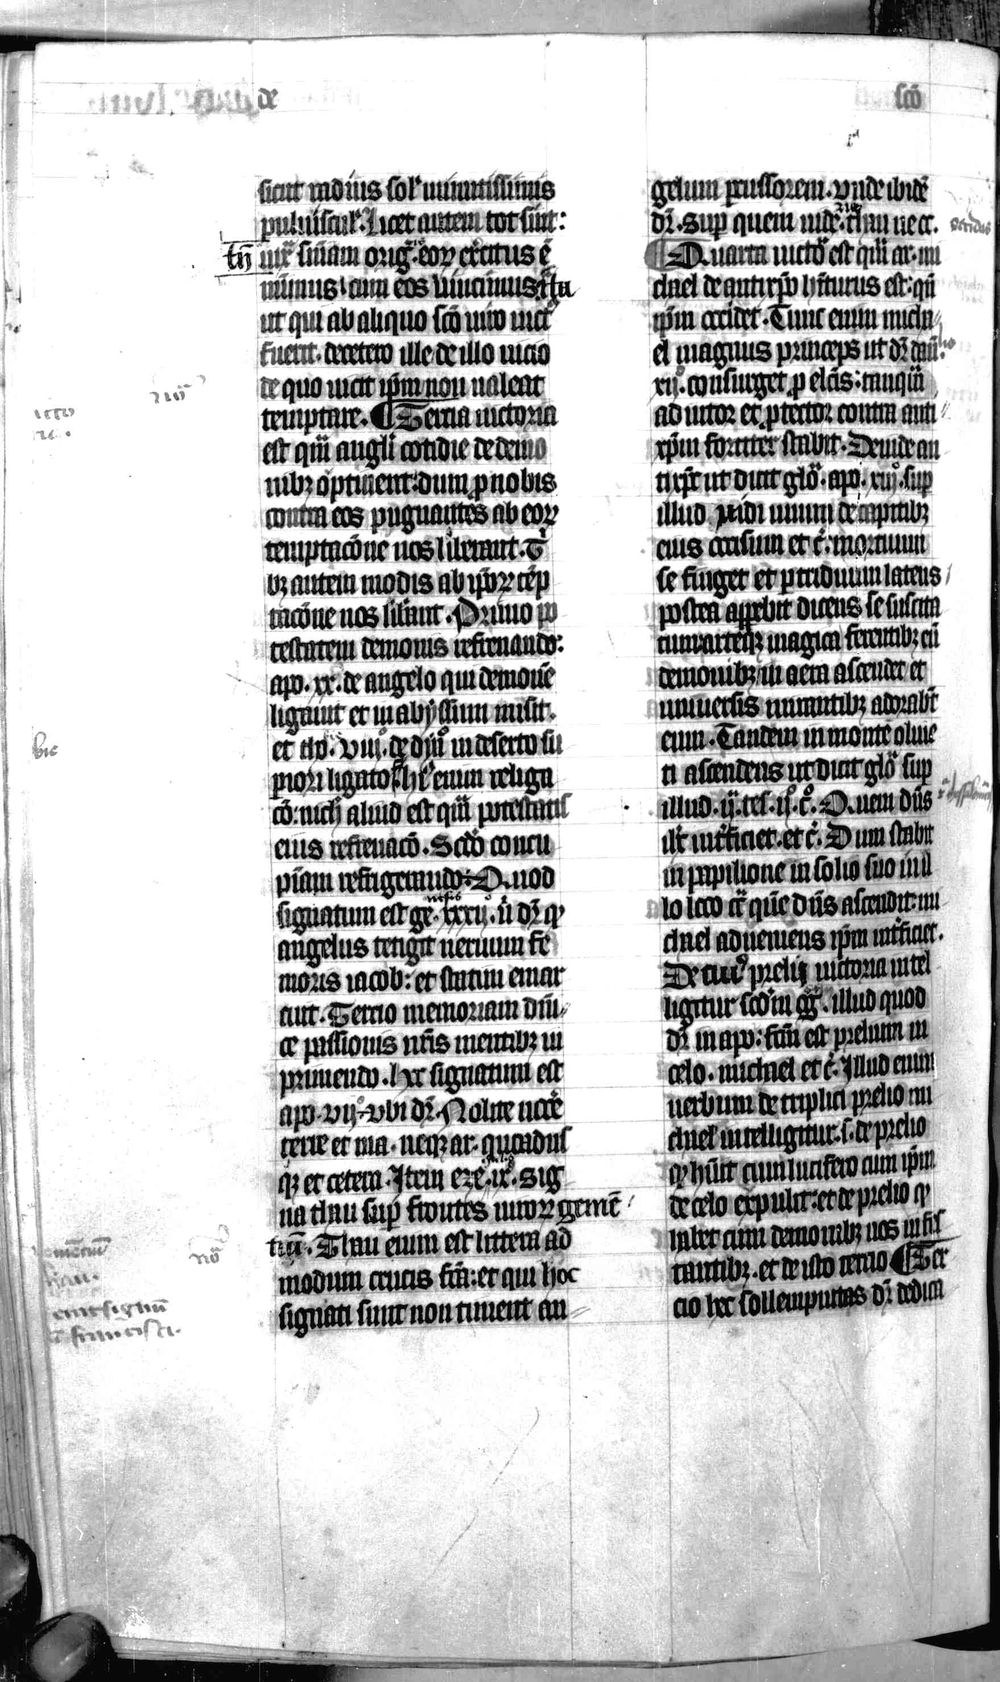 de
sicut radius sol' minutissimis
puluiscul'. Licet autem tot sint:
tn̄ iux̄ sn̄iam oriḡ. eoꝝ exercitus ē
minimus cum eos uincimus. Ita
ut qui ab aliquo sc̄o uiro uict'
fuerit. decetero ille de illo uicio
de quo uicit ip̄m non ualeat
temptare. ¶ Tertia uictoria
est qn̄ angeli cotidie de demo
nibꝫ optinent: dum p nobis
contra eos pugnantes ab eoꝝ
temptac̄one nos liberant. T'
bꝫ autem modis ab ip̄oꝝ tēp
tac̄one nos lib'ant. Primo po
testatem demonis refrenando:
apo. xx. de angelo qui demonē
ligauit et in abyssum misit.
et tho. viijº. de dn̄º in deserto su
periori ligato. hec enim religa
cō: nich' aliud est qm̄ potestatis
eius refrenacō. Scdo concu
piam refrigerando: Quod
signatum est ge. xxxijº. ū dr̄ qꝫ
angelus tetigit neruum fe
moris iacob: et statim emar
cuit. Tertio memoriam dn̄i
ce passionis nr̄is mentibꝫ in
primendo. hoc signatum est
apo. vijº. vbi dr̄. Nolite nocē
terre et ma. neqꝫ ar. quoadus
qꝫ et cetera. Item ezē. ixº. Sig
na thau sup frontes uiroꝝ gemē
tiū. Thau enim est littera ad
modum crucis fc̄a: et qui hoc
signati sunt non timent an
scō
gelum pcussorem. Vnde ibidē
dr̄. sup quem uidē. thau ne oc.
¶ Quarta uictō est qm̄ ar. mi
chael de antixpo hīturus est: qn̄
ip̄m occidet. Tunc enim micha
el magnus princeps ut dr̄ dan.
xijº. consurget p elcīs: tanqm̄
adiutor et ptector contra anti
xp̄m fortiter stabit. Deinde an
tixp̄c ut dicit glō. apo. xiijº. sup
illud vidi unum de capitibꝫ
eius occisum et c̄. mortuum
se finget et p triduum latens
postea apparebit dicens se suscita
tum arteqꝫ magica ferentibꝫ eū
demonibꝫ in aera ascendet et
uniuersis mirantibꝫ adorabt̄
eum. Tandem in monte oliue
ti ascendens ut dicit glō sup
illud. ij. tes. ijº. c̄. Quem dūs
ih̄c int̄ficiet. et c̄. Dum stabit
in papilione in solio suo in il
lo loco cr̄ que dūs ascendit: mi
chael adueniens ip̄m int̄ficiet.
De cuiꝰ prelij uictoria intel
ligitur scd̄m gg̃. illud quod
dr̄ in apo: fc̄m est prelium in
celo. michael et c̄. Illud enim
uerbum de triplici prelio mi
chael' intelligitur. s. de prelio
qꝫ hūit cum lucifero cum ip̄m
de celo expulit: et de prelio qꝫ
habet cum demonibꝫ nos infes
tantibꝫ. et de isto tertio ¶ Ter
cio hec sollempnitas dr̄ dedica